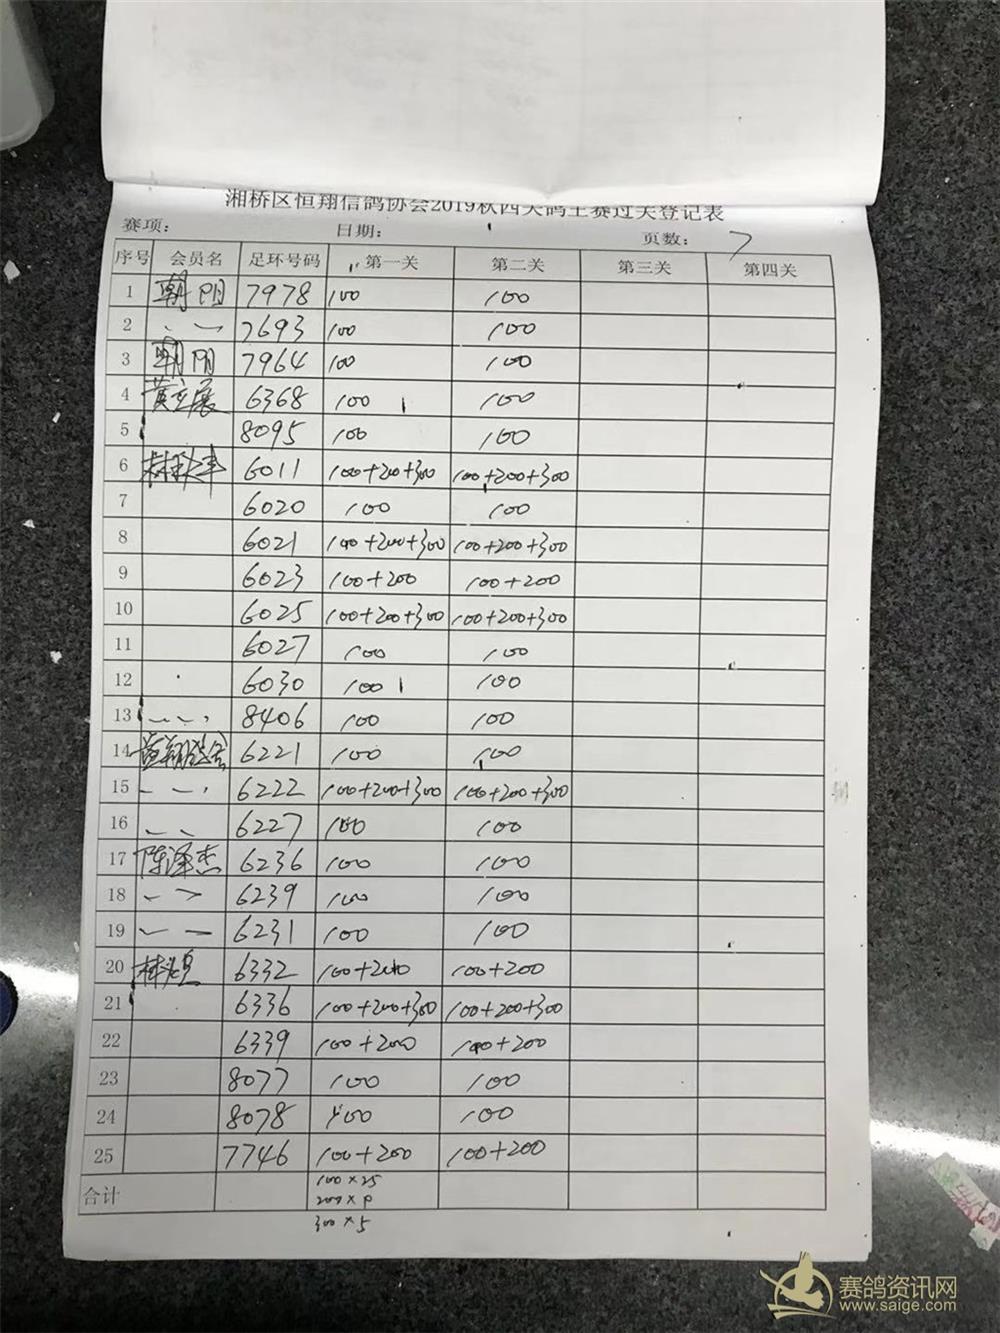 湘桥区恒翔信鸽协会2019秋四关鸽王赛过关登记表
赛项: 日期: 页数: 7
序号 会员名 足环号码 第一关 第二关 第三关 第四关
1 朝阳 7978 100 100
2 〃 7693 100 100
3 朝阳 7964 100 100
4 黄立展 6368 100 100
5 8095 100 100
6 6011 100+200+300 100+200+300
7 6020 100 100
8 6021 100+200+300 100+200+300
9 6023 100+200 100+200
10 6025 100+200+300 100+200+300
11 6027 100 100
12 6030 100 100
13 〃 8406 100 100
14 6221 100 100
15 〃 6222 100+200+300 100+200+300
16 〃 6227 100 100
17 陈泽杰 6236 100 100
18 〃 6239 100 100
19 〃 6231 100 100
20 6332 100+200 100+200
21 6336 100+200+300 100+200+300
22 6339 100+200 100+200
23 8077 100 100
24 8078 100 100
25 7746 100+200 100+200
合计 100×25
200×
300×5
赛鸽资讯网
www.saige.com